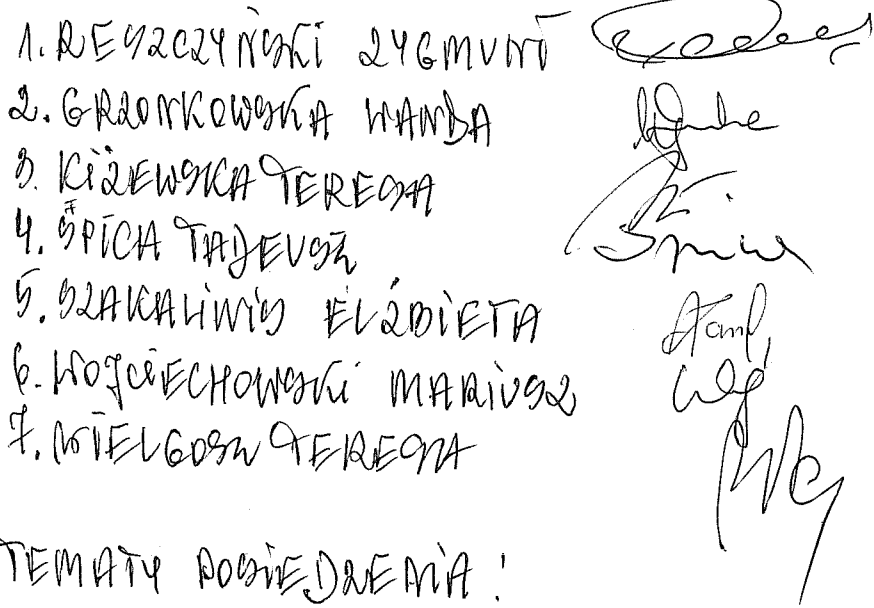 1. RESZCZYŃSKI ZYGMUNT
2. GRZONKOWSKA WANDA
3. KIŻEWSKA TERESA
4. ŚPICA TADEUSZ
5. SZAKALINIS ELŻBIETA
6. WOJCIECHOWSKI MARIUSZ
7. WIELGOSZ TERESA
TEMATY POSIEDZENIA: